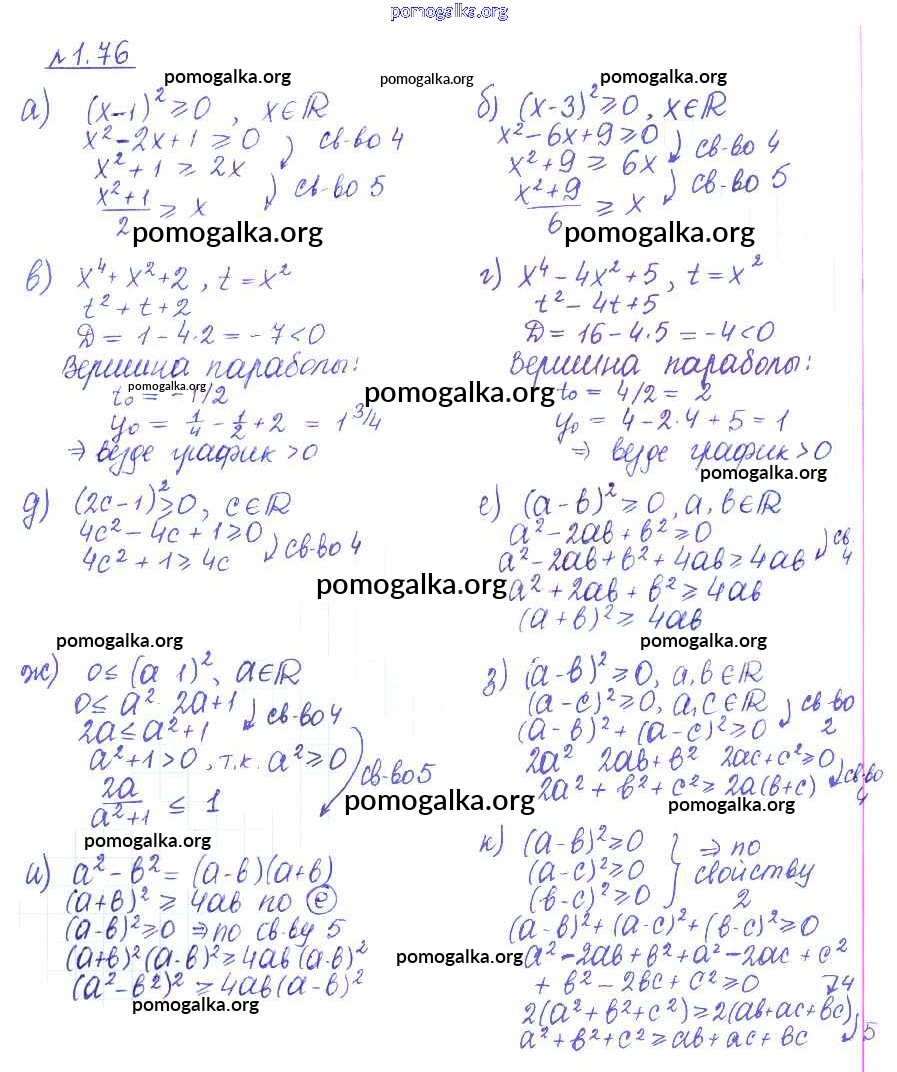 pomogalka.org
№1.76
pomogalka.org pomogalka.org pomogalka.org
а) (x-1)² ≥ 0 , x∈R
x² - 2x + 1 ≥ 0
св-во 4
x² + 1 ≥ 2x
св-во 5
(x²+1)/2 ≥ x
pomogalka.org
б) (x-3)² ≥ 0 , x∈R
x² - 6x + 9 ≥ 0
св-во 4
x² + 9 ≥ 6x
св-во 5
(x²+9)/6 ≥ x
pomogalka.org
в) x⁴ + x² + 2 , t = x²
t² + t + 2
D = 1 - 4·2 = -7 < 0
Вершина параболы:
pomogalka.org
t₀ = -1/2
y₀ = 1/4 - 1/2 + 2 = 1 3/4
⇒ везде график > 0
г) x⁴ - 4x² + 5 , t = x²
t² - 4t + 5
D = 16 - 4·5 = -4 < 0
Вершина параболы:
pomogalka.org
t₀ = 4/2 = 2
y₀ = 4 - 2·4 + 5 = 1
⇒ везде график > 0
pomogalka.org
д) (2c-1)² ≥ 0, c∈R
4c² - 4c + 1 ≥ 0
св-во 4
4c² + 1 ≥ 4c
pomogalka.org
е) (a-b)² ≥ 0, a,b∈R
a² - 2ab + b² ≥ 0
св. 4
a² - 2ab + b² + 4ab ≥ 4ab
a² + 2ab + b² ≥ 4ab
(a+b)² ≥ 4ab
pomogalka.org pomogalka.org
ж) 0 ≤ (a 1)², a∈R
0 ≤ a² 2a + 1
св-во 4
2a ≤ a² + 1
a² + 1 > 0 , т.к. a² ≥ 0
св-во 5
2a/(a²+1) ≤ 1
pomogalka.org
з) (a-b)² ≥ 0, a,b∈R
(a-c)² ≥ 0, a,c∈R
св-во 2
(a-b)² + (a-c)² ≥ 0
2a² 2ab + b² 2ac + c² ≥ 0
св-во 4
2a² + b² + c² ≥ 2a(b+c)
pomogalka.org
pomogalka.org
и) a² - b² = (a-b)(a+b)
(a+b)² ≥ 4ab по е
(a-b)² ≥ 0 ⇒ по св-ву 5
(a+b)²(a-b)² ≥ 4ab(a-b)²
(a²-b²)² ≥ 4ab(a-b)²
pomogalka.org
к) (a-b)² ≥ 0
(a-c)² ≥ 0
(b-c)² ≥ 0
⇒ по
свойству
2
(a-b)² + (a-c)² + (b-c)² ≥ 0
pomogalka.org
a² - 2ab + b² + a² - 2ac + c²
+ b² - 2bc + c² ≥ 0
4
2(a² + b² + c²) ≥ 2(ab+ac+bc)
5
a² + b² + c² ≥ ab + ac + bc